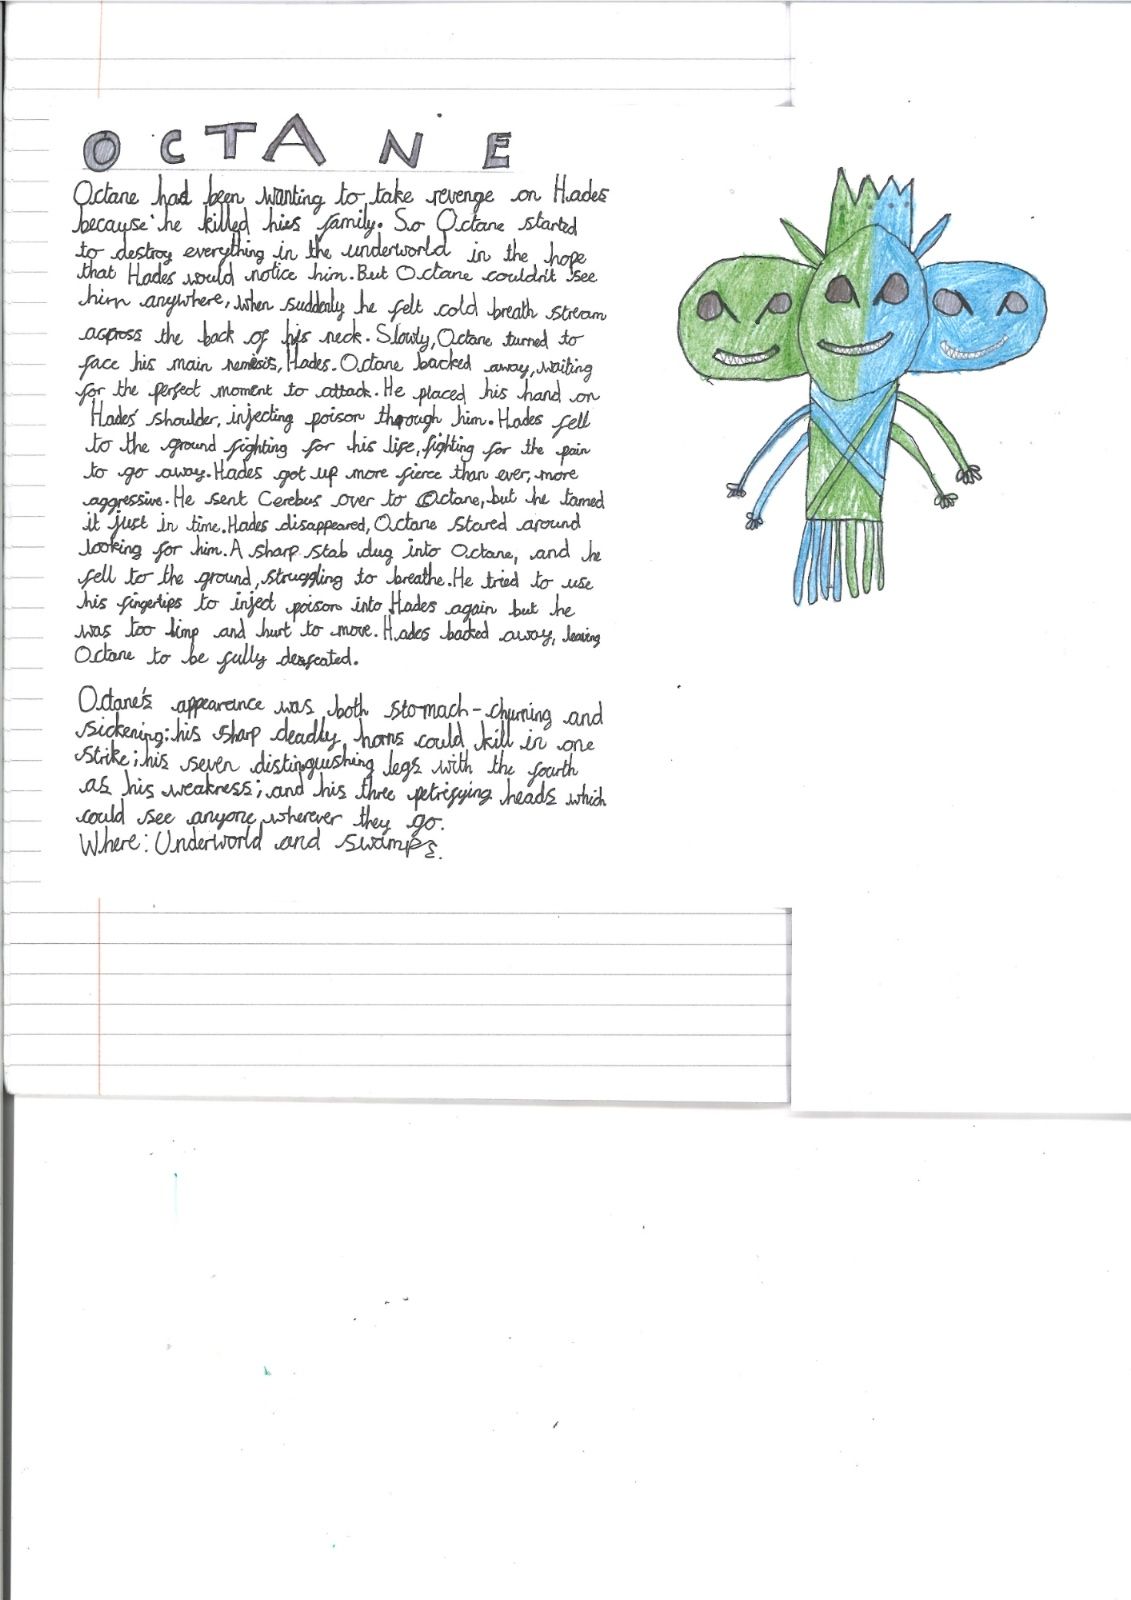 OCTANE
Octane had been wanting to take revenge on Hades
because he killed his family. So Octane started
to destroy everything in the underworld in the hope
that Hades would notice him. But Octane couldn't see
him anywhere, when suddenly he felt cold breath stream
across the back of his neck. Slowly, Octane turned to
face his main nemesis, Hades. Octane backed away, waiting
for the perfect moment to attack. He placed his hand on
Hades' shoulder, injecting poison through him. Hades fell
to the ground fighting for his life, fighting for the pain
to go away. Hades got up more fierce than ever, more
aggressive. He sent Cerebus over to Octane, but he tamed
it just in time. Hades disappeared, Octane stared around
looking for him. A sharp stab dug into Octane, and he
fell to the ground, struggling to breathe. He tried to use
his fingertips to inject poison into Hades again but he
was too limp and hurt to move. Hades backed away, leaving
Octane to be fully defeated.
Octane's appearance was both stomach-churning and
sickening: his sharp deadly horns could kill in one
strike; his seven distinguishing legs with the fourth
as his weakness; and his three petrifying heads which
could see anyone, wherever they go.
Where: Underworld and swamps.